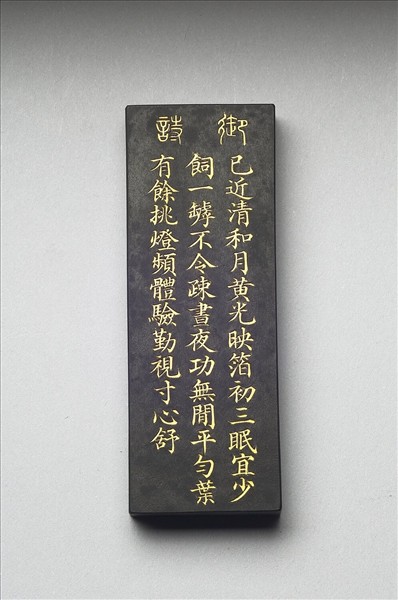 御詩
已近清和月黃光映箔初三眠宜少
飼一罅不令疎晝夜功無閒平勻葉
有餘挑燈頻體驗勤視寸心舒